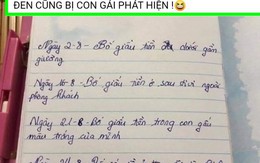 ĐEN CŨNG BỊ CON GÁI PHÁT HIỆN !
Ngày 2-8- Bố giấu tiền ở dưới gần
gương
Ngày 16-8- Bố giấu tiền ở sau tivi ngoài
phòng khách
Ngày 21-8-Bố giấu tiền trong con gấu
màu trắng của mình